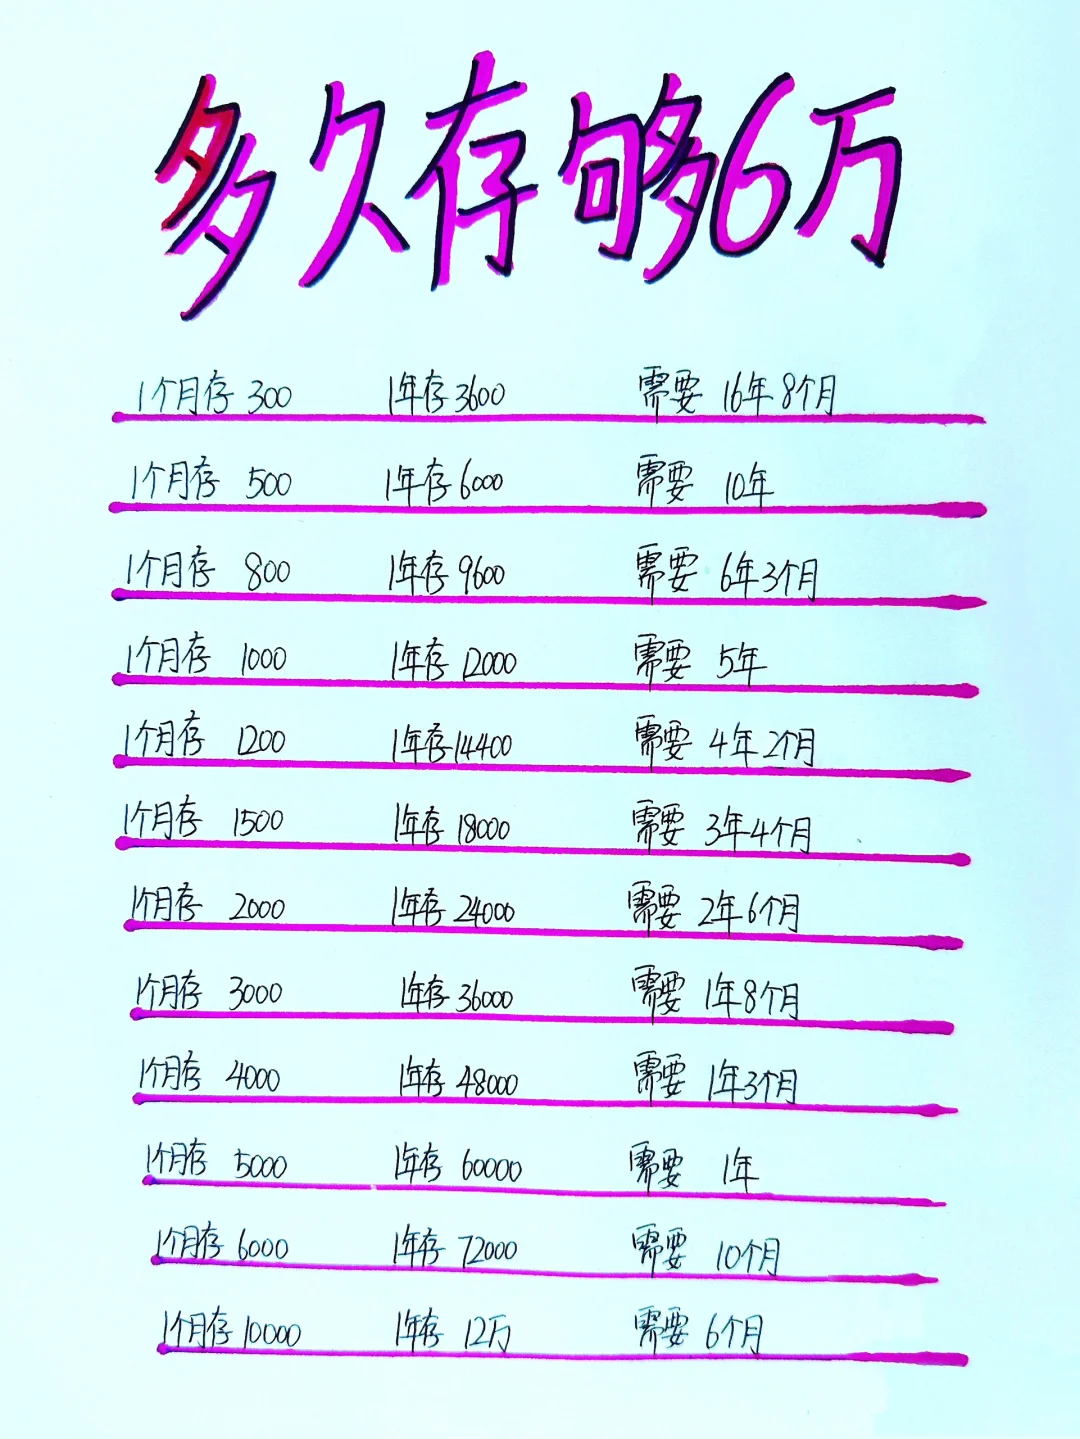 多久存够6万
1个月存 300 1年存 3600 需要 16年8个月
1个月存 500 1年存 6000 需要 10年
1个月存 800 1年存 9600 需要 6年3个月
1个月存 1000 1年存 12000 需要 5年
1个月存 1200 1年存 14400 需要 4年2个月
1个月存 1500 1年存 18000 需要 3年4个月
1个月存 2000 1年存 24000 需要 2年6个月
1个月存 3000 1年存 36000 需要 1年8个月
1个月存 4000 1年存 48000 需要 1年3个月
1个月存 5000 1年存 60000 需要 1年
1个月存 6000 1年存 72000 需要 10个月
1个月存 10000 1年存 12万 需要 6个月